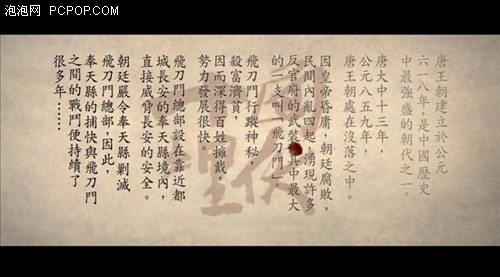 泡泡网 PCPOP.COM
唐王朝建立於公元
六一八年，是中國歷史
中最強盛的朝代之一。
唐大中十三年，
公元八五九年，
唐王朝處在沒落之中。
因皇帝昏庸，朝廷腐敗，
民間內亂四起，湧現許多
反官府的武裝，其中最大
的一支叫「飛刀門」
飛刀門行蹤神秘，
殺富濟貧，
因而深得百姓擁戴，
勢力發展很快。
飛刀門總部設在靠近都
城長安的奉天縣境內，
直接威脅長安的安全。
朝廷嚴令奉天縣剿滅
飛刀門總部，因此，
奉天縣的捕快與飛刀門
之間的戰鬥便持續了
很多年……